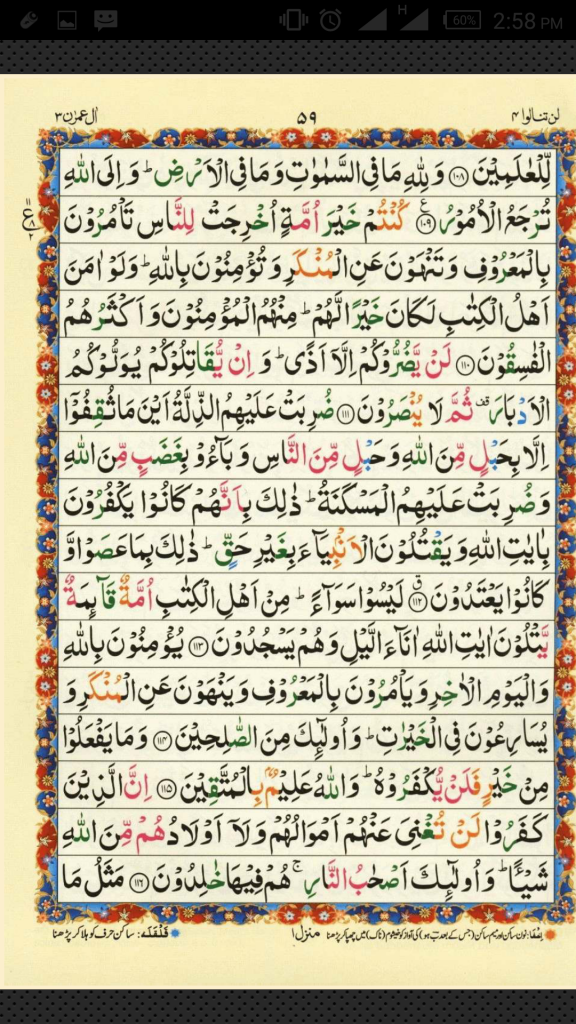 H 60% 2:58 PM
لن تنالوا ۴ ۵۹ اٰل عمرٰن ۳
لِّلْعٰلَمِيْنَ ۝۱۰۸ وَلِلّٰهِ مَا فِى السَّمٰوٰتِ وَمَا فِى الْاَرْضِ ؕ وَاِلَى اللّٰهِ
تُرْجَعُ الْاُمُوْرُ ۝۱۰۹ ع كُنْتُمْ خَيْرَ اُمَّةٍ اُخْرِجَتْ لِلنَّاسِ تَاْمُرُوْنَ
۱۱ ع ۸ ۲
بِالْمَعْرُوْفِ وَتَنْهَوْنَ عَنِ الْمُنْكَرِ وَتُؤْمِنُوْنَ بِاللّٰهِ ؕ وَلَوْ اٰمَنَ
اَهْلُ الْكِتٰبِ لَكَانَ خَيْرًا لَّهُمْ ؕ مِنْهُمُ الْمُؤْمِنُوْنَ وَاَكْثَرُهُمُ
الْفٰسِقُوْنَ ۝۱۱۰ لَنْ يَّضُرُّوْكُمْ اِلَّاۤ اَذًى ؕ وَاِنْ يُّقَاتِلُوْكُمْ يُوَلُّوْكُمُ
الْاَدْبَارَ قف ثُمَّ لَا يُنْصَرُوْنَ ۝۱۱۱ ضُرِبَتْ عَلَيْهِمُ الذِّلَّةُ اَيْنَ مَا ثُقِفُوْۤا
اِلَّا بِحَبْلٍ مِّنَ اللّٰهِ وَحَبْلٍ مِّنَ النَّاسِ وَبَآءُوْ بِغَضَبٍ مِّنَ اللّٰهِ
وَضُرِبَتْ عَلَيْهِمُ الْمَسْكَنَةُ ؕ ذٰلِكَ بِاَنَّهُمْ كَانُوْا يَكْفُرُوْنَ
بِاٰيٰتِ اللّٰهِ وَيَقْتُلُوْنَ الْاَنْۢبِيَآءَ بِغَيْرِ حَقٍّ ؕ ذٰلِكَ بِمَا عَصَوْا وَّ
كَانُوْا يَعْتَدُوْنَ ۝۱۱۲ ق لَيْسُوْا سَوَآءً ؕ مِنْ اَهْلِ الْكِتٰبِ اُمَّةٌ قَآئِمَةٌ
يَّتْلُوْنَ اٰيٰتِ اللّٰهِ اٰنَآءَ الَّيْلِ وَهُمْ يَسْجُدُوْنَ ۝۱۱۳ يُؤْمِنُوْنَ بِاللّٰهِ
وَالْيَوْمِ الْاٰخِرِ وَيَاْمُرُوْنَ بِالْمَعْرُوْفِ وَيَنْهَوْنَ عَنِ الْمُنْكَرِ وَ
يُسَارِعُوْنَ فِى الْخَيْرٰتِ ؕ وَاُولٰٓئِكَ مِنَ الصّٰلِحِيْنَ ۝۱۱۴ وَمَا يَفْعَلُوْا
مِنْ خَيْرٍ فَلَنْ يُّكْفَرُوْهُ ؕ وَاللّٰهُ عَلِيْمٌۢ بِالْمُتَّقِيْنَ ۝۱۱۵ اِنَّ الَّذِيْنَ
كَفَرُوْا لَنْ تُغْنِىَ عَنْهُمْ اَمْوَالُهُمْ وَلَاۤ اَوْلَادُهُمْ مِّنَ اللّٰهِ
شَيْـًٔا ؕ وَاُولٰٓئِكَ اَصْحٰبُ النَّارِ ۚ هُمْ فِيْهَا خٰلِدُوْنَ ۝۱۱۶ مَثَلُ مَا
اِخفَا: نون ساکن اور میم ساکن (جس کے بعد ب ہو) کی آواز کو خیشوم (ناک) میں چھپا کر پڑھنا منزل ۱ قَلْقَلَه: ساکن حرف کو ہلا کر پڑھنا